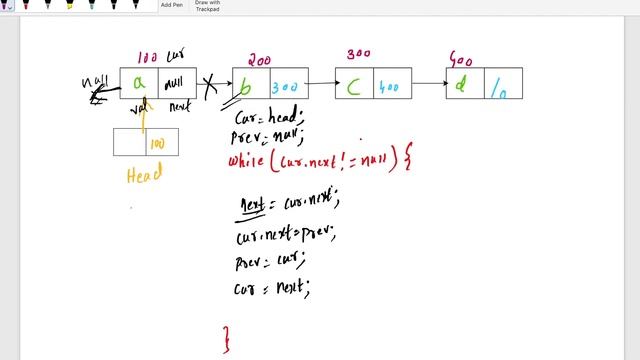 Add Pen
Draw with Trackpad
100 cur
200
300
400
null
a
null
b
300
c
400
d
val
next
100
Head
Cur = head;
Prev = null;
while (cur.next != null) {
next = cur.next;
cur.next = prev;
prev = cur;
cur = next;
}